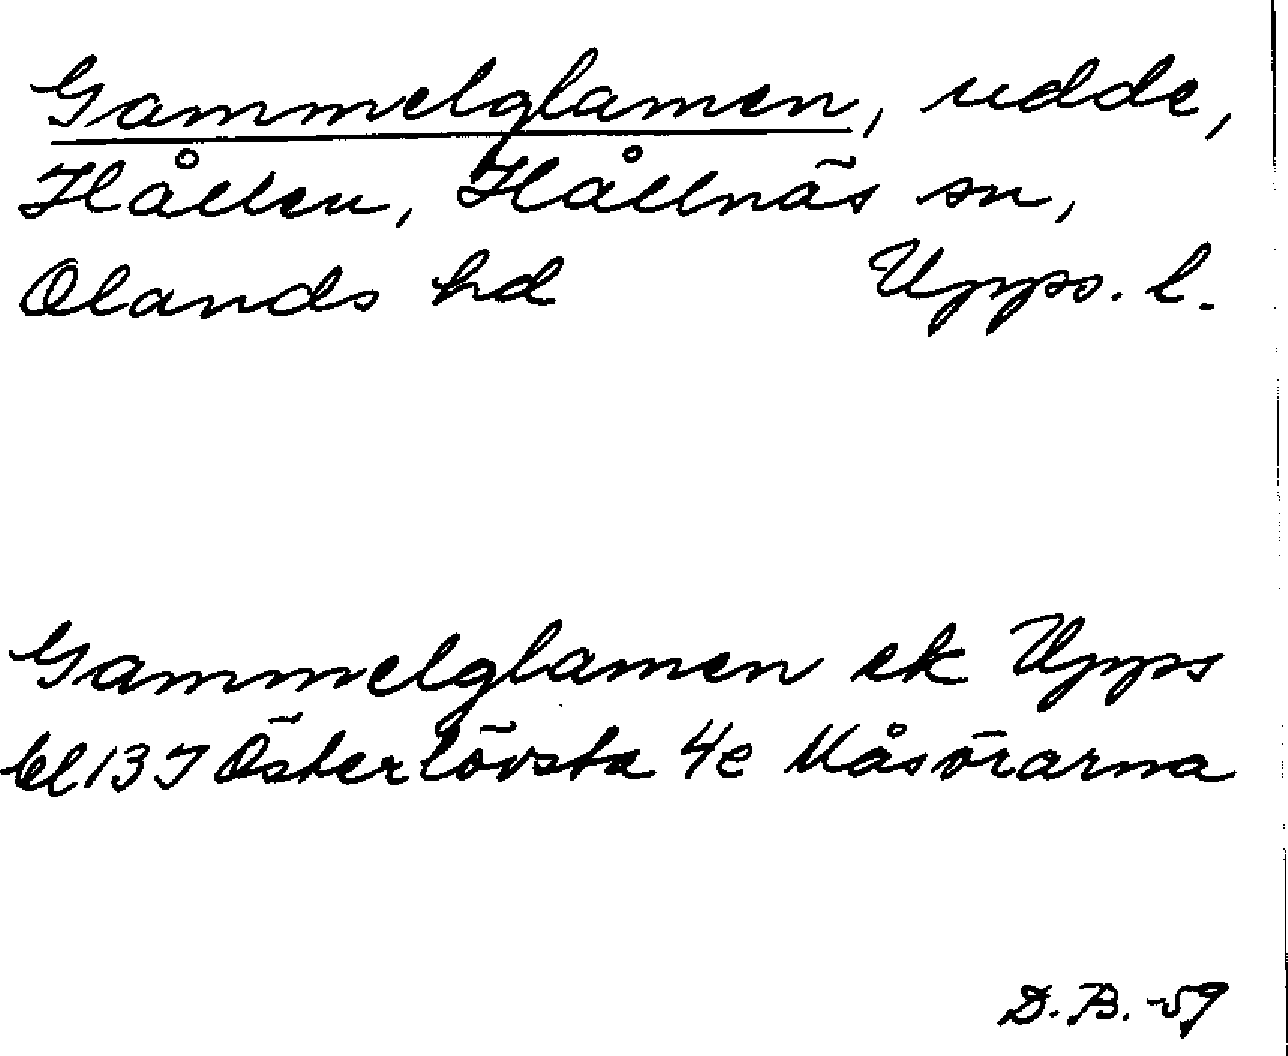 Gammelglamen, udde,
Hållen, Hållnäs sn,
Olands hd Upps. l.
Gammelglamen ek Upps
bl 13 I Österlövsta 4e Måsörarna
D.B. -59